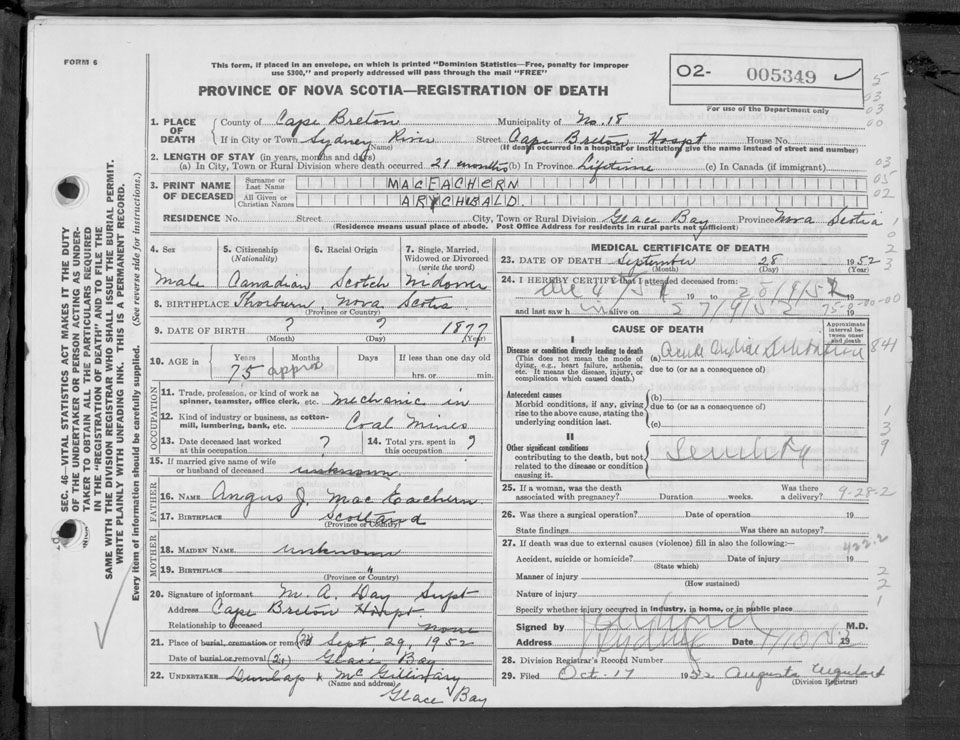 FORM 6
This form, if placed in an envelope, on which is printed "Dominion Statistics—Free, penalty for improper
use $300," and properly addressed will pass through the mail "FREE"
O2- 005349
For use of the Department only
PROVINCE OF NOVA SCOTIA—REGISTRATION OF DEATH
1. PLACE OF DEATH County of Cape Breton Municipality of No. 18
If in City or Town Sydney River Street Cape Breton Hospt House No.
(Name) (If death occurred in a hospital or institution, give the name instead of street and number)
2. LENGTH OF STAY (in years, months and days)
(a) In City, Town or Rural Division where death occurred 21 months (b) In Province Lifetime (c) In Canada (if immigrant)
3. PRINT NAME OF DECEASED Surname or Last Name MACEACHERN
All Given or Christian Names ARCHIBALD.
RESIDENCE No. Street City, Town or Rural Division Glace Bay Province Nova Scotia
(Residence means usual place of abode. Post Office Address for residents in rural parts not sufficient)
4. Sex 5. Citizenship (Nationality) 6. Racial Origin 7. Single, Married, Widowed or Divorced (write the word)
Male Canadian Scotch Widower
8. BIRTHPLACE Thorburn, Nova Scotia
(Province or Country)
9. DATE OF BIRTH ? ? 1877
(Month) (Day) (Year)
10. AGE in Years Months Days If less than one day old
75 approx hrs. or min.
OCCUPATION
11. Trade, profession, or kind of work as spinner, teamster, office clerk, etc. Mechanic in
12. Kind of industry or business, as cotton-mill, lumbering, bank, etc. Coal Mines
13. Date deceased last worked at this occupation ? 14. Total yrs. spent in this occupation ?
15. If married give name of wife or husband of deceased unknown
FATHER
16. NAME Angus J. MacEachern
17. BIRTHPLACE Scotland
(Province or Country)
MOTHER
18. MAIDEN NAME unknown
19. BIRTHPLACE "
(Province or Country)
20. Signature of informant M. A. Day Supt
Address Cape Breton Hospt
Relationship to deceased none
21. Place of burial, cremation or removal (22) Sept. 29, 1952
Date of burial or removal (21) Glace Bay
22. UNDERTAKER Dunlap & McGillivary
(Name and address) Glace Bay
MEDICAL CERTIFICATE OF DEATH
23. DATE OF DEATH September 28 1952
(Month) (Day) (Year)
24. I HEREBY CERTIFY that I attended deceased from:
19 to
and last saw h im alive on 19
CAUSE OF DEATH
Approximate interval between onset and death
I
Disease or condition directly leading to death (a) Acute
(This does not mean the mode of dying, e.g., heart failure, asthenia, etc. It means the disease, injury, or complication which caused death.)
due to (or as a consequence of)
Antecedent causes
Morbid conditions, if any, giving rise to the above cause, stating the underlying condition last.
(b)
due to (or as a consequence of)
(c)
II
Other significant conditions
contributing to the death, but not related to the disease or condition causing it.
Senility
25. If a woman, was the death associated with pregnancy? Duration weeks. Was there a delivery? 9-28-2
26. Was there a surgical operation? Date of operation 19
State findings Was there an autopsy?
27. If death was due to external causes (violence) fill in also the following:—
Accident, suicide or homicide? Date of injury 19
(State which)
422.2
Manner of injury
(How sustained)
Nature of injury
Specify whether injury occurred in industry, in home, or in public place
Signed by M.D.
Address Sydney Date 19
28. Division Registrar's Record Number
29. Filed Oct. 17 1952 Augusta
(Division Registrar)
SEC. 46—VITAL STATISTICS ACT MAKES IT THE DUTY
OF THE UNDERTAKER OR PERSON ACTING AS UNDER-
TAKER TO OBTAIN ALL THE PARTICULARS REQUIRED
IN THE "REGISTRATION OF DEATH" AND TO FILE THE
SAME WITH THE DIVISION REGISTRAR WHO SHALL ISSUE THE BURIAL PERMIT.
WRITE PLAINLY WITH UNFADING INK. THIS IS A PERMANENT RECORD.
Every item of information should be carefully supplied. (See reverse side for instructions.)